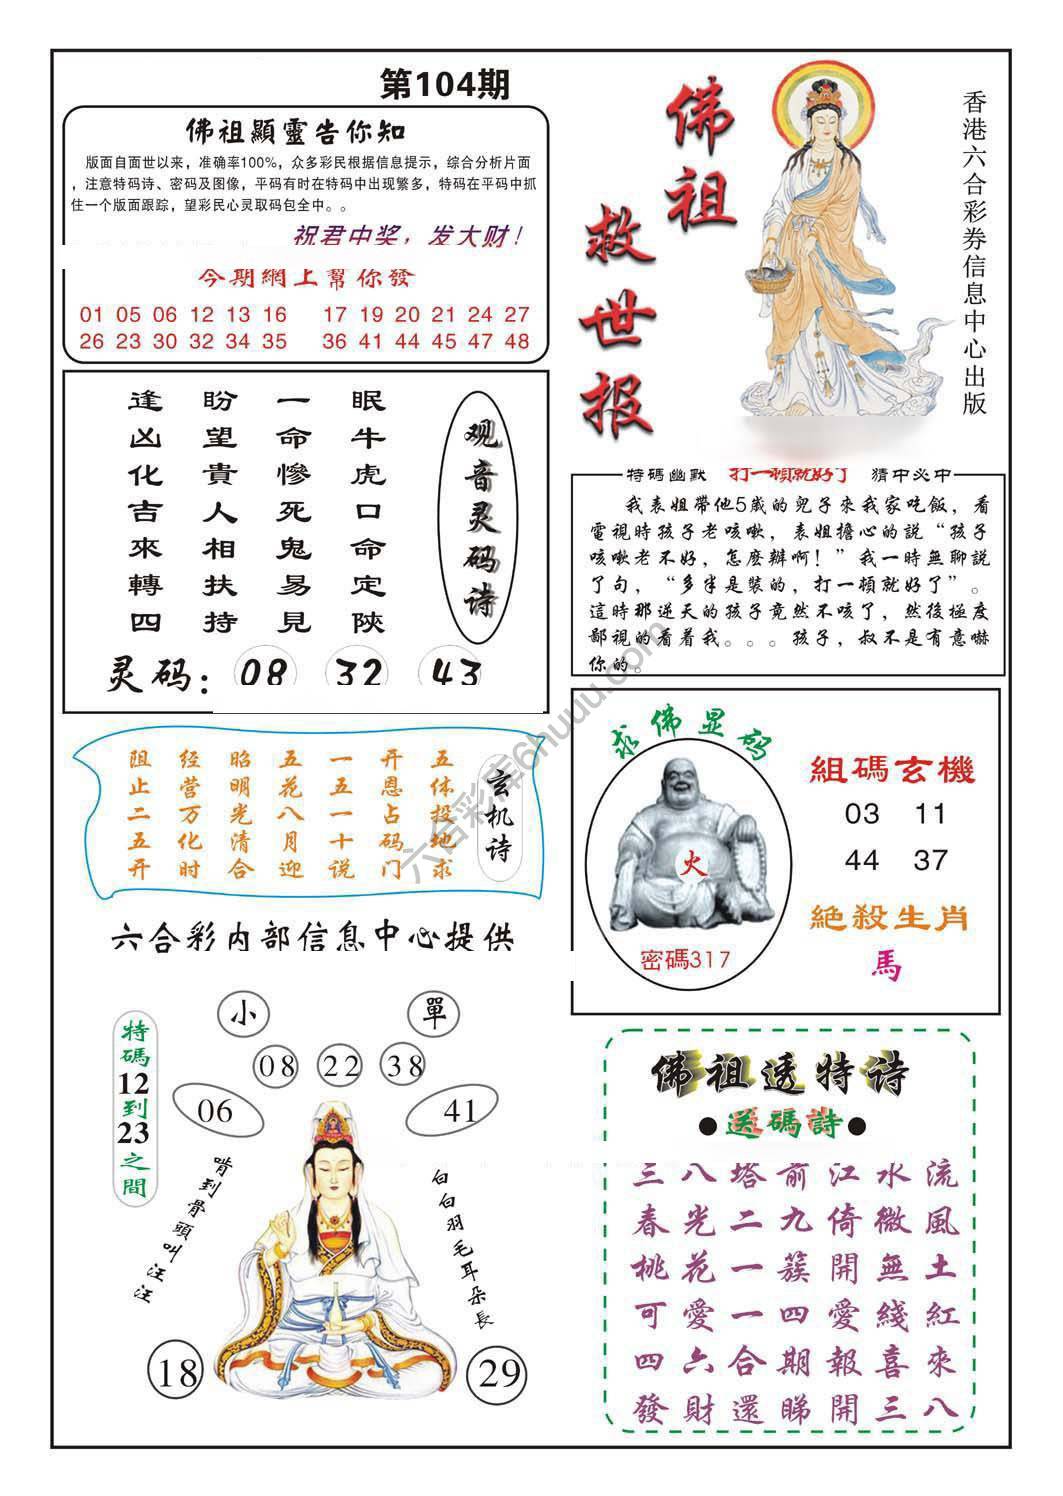 第104期
佛祖顯靈告你知
版面自面世以来，准确率100%，众多彩民根据信息提示，综合分析片面
，注意特码诗、密码及图像，平码有时在特码中出现繁多，特码在平码中抓
住一个版面跟踪，望彩民心灵取码包全中。。
祝君中奖，发大财！
今期網上幫你發
01 05 06 12 13 16 17 19 20 21 24 27
26 23 30 32 34 35 36 41 44 45 47 48
佛祖
救世报
香港六合彩券信息中心出版
观音灵码诗
眠牛虎口命定陝
一命慘死鬼易見
盼望貴人相扶持
逢凶化吉來轉四
灵码：08 32 43
特碼幽默 打一頓就好了 猜中必中
我表姐帶他5歲的兒子來我家吃飯，看
電視時孩子老咳嗽，表姐擔心的説“孩子
咳嗽老不好，怎麽辦啊！”我一時無聊説
了句，“多半是裝的，打一頓就好了”。
這時那逆天的孩子竟然不咳了，然後極度
鄙視的看着我。。。孩子，叔不是有意嚇
你的。
玄机诗
五体投地求
开恩占码门
一五一十说
五花八月迎
昭明光清合
经营万化时
阻止二五开
求佛显码
火
密碼317
組碼玄機
03 11
44 37
絕殺生肖
馬
六合彩内部信息中心提供
特碼12到23之間
小 單
08 22 38
06 41
啃到骨頭叫汪汪
白白羽毛耳朵長
18 29
佛祖透特诗
●送碼詩●
三八塔前江水流
春光二九倚微風
桃花一簇開無土
可愛一四愛綫紅
四六合期報喜來
發財還睇開三八
六合彩库6huuu.com